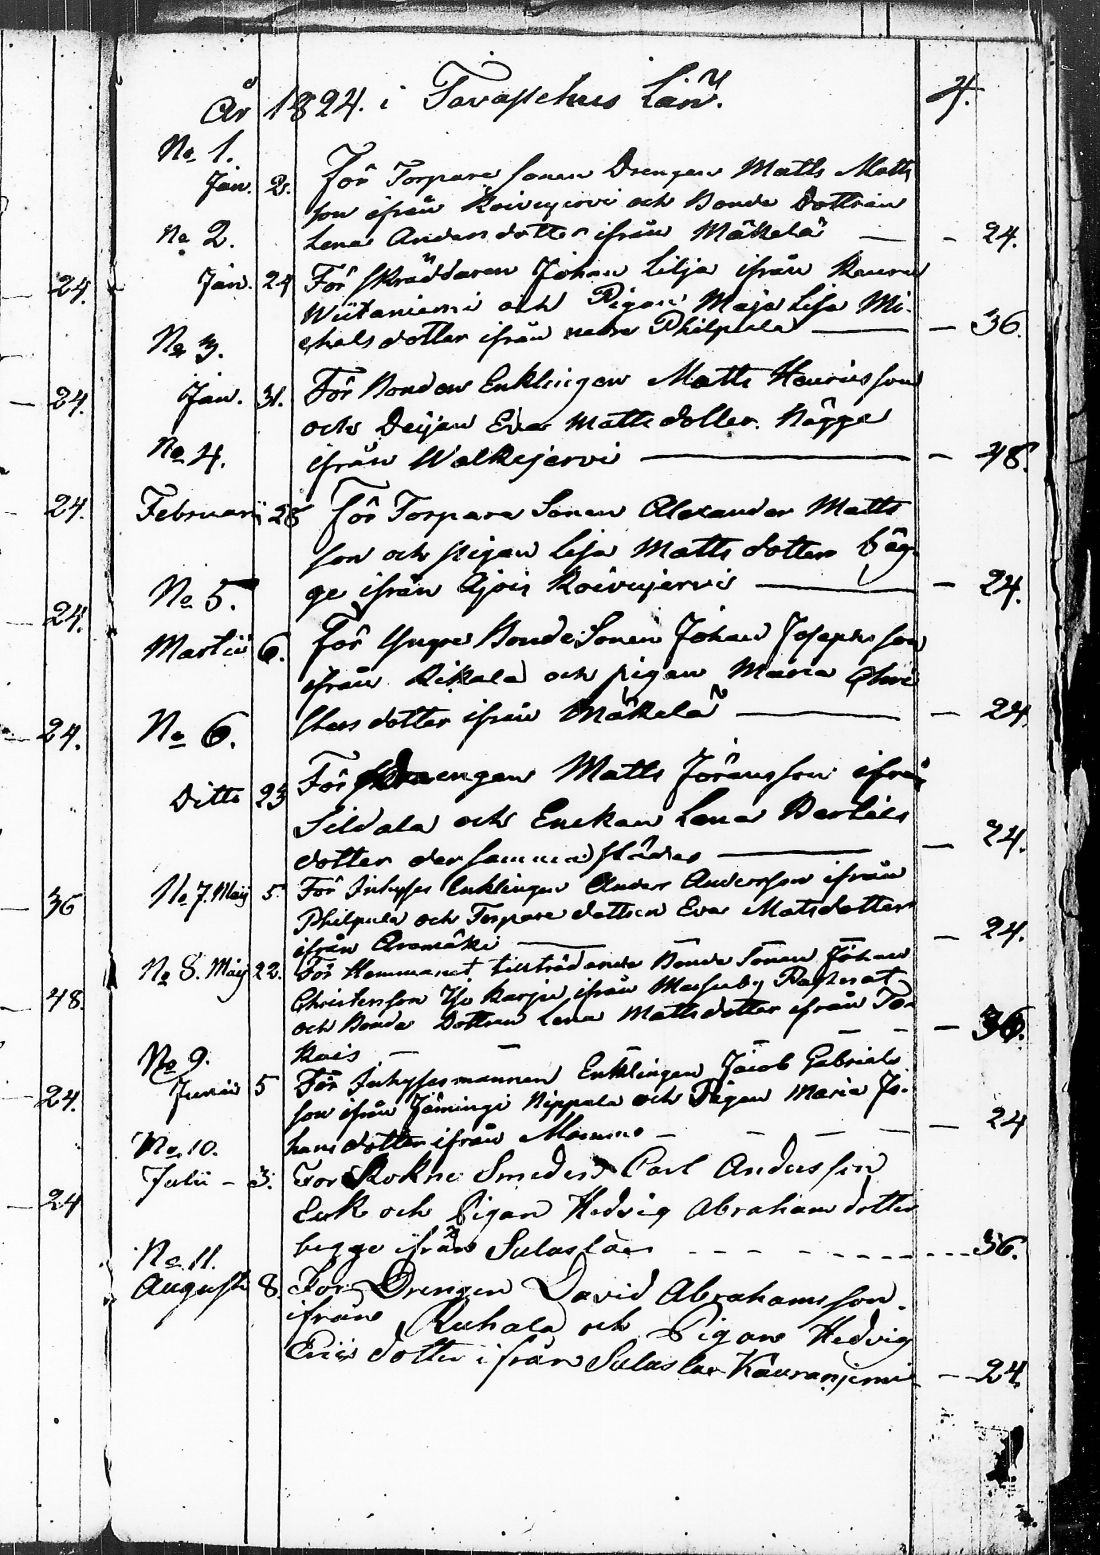 24.
24.
24.
24.
24.
36
48.
24.
24
År 1824. i Tavastehus Län. 4.
No 1.
Jan. 2. För Torpare Sonen Drengen Matts Matts
son ifrån Koivujervi och Bonde Dottren
No 2. Lena Anders dotter ifrån Mäkelä — 24.
Jan. 24 För Skräddaren Johan Lilja ifrån
Wiitaniemi och Pigan Maja Lisa Mi-
No 3. chels dotter ifrån nedre Philpula — 36.
Jan. 31. För Bonden Enklingen Matts Henrics son
och Deijan Eva Matts dotter. bägge
No 4. ifrån Walkejervi — 48.
Februarii 28 För Torpare Sonen Alexander Matts
son och pigan Lisa Matts dotter bäg-
No 5. ge ifrån Koivujervi — 24.
Martii 6. För Yngre Bonde Sonen Johan Josephs son
ifrån Rikala och pigan Maria Chri
No 6. sters dotter ifrån Mäkelä — 24.
Ditto 23 För Drengen Matts Jöransson ifrån
Sildala och Enckan Lena Bertils
dotter der sammastädes — 24.
No 7. Maij 5. För Inhyses Enklingen Anders Andersson ifrån
Philpula och Torpare dottren Eva Matsdotter
ifrån Aromäki — 24.
No 8. Maij 22. För Hemmanet tillträdande Bonde Sonen Johan
Christersson Yso Karju ifrån
och Bonde Dottren Lena Mattsdotter ifrån Tor
kais — 36.
No 9.
Junii 5 För Inhysesmannen Enklingen Jacob Gabriels
son ifrån Jäminge Nippala och Pigan Maria Jo-
No. 10. hans dotter ifrån — 24
Julii – 3. For Sokne Smeden Carl Andersson
Enk och Pigan Hedvig Abrahams dotter
No. 11. begge ifrån — 36.
Augusti 8. For Drengen David Abrahamsson.
ifrån Ruhala och Pigan Hedvig
Erics dotter ifrån — 24.